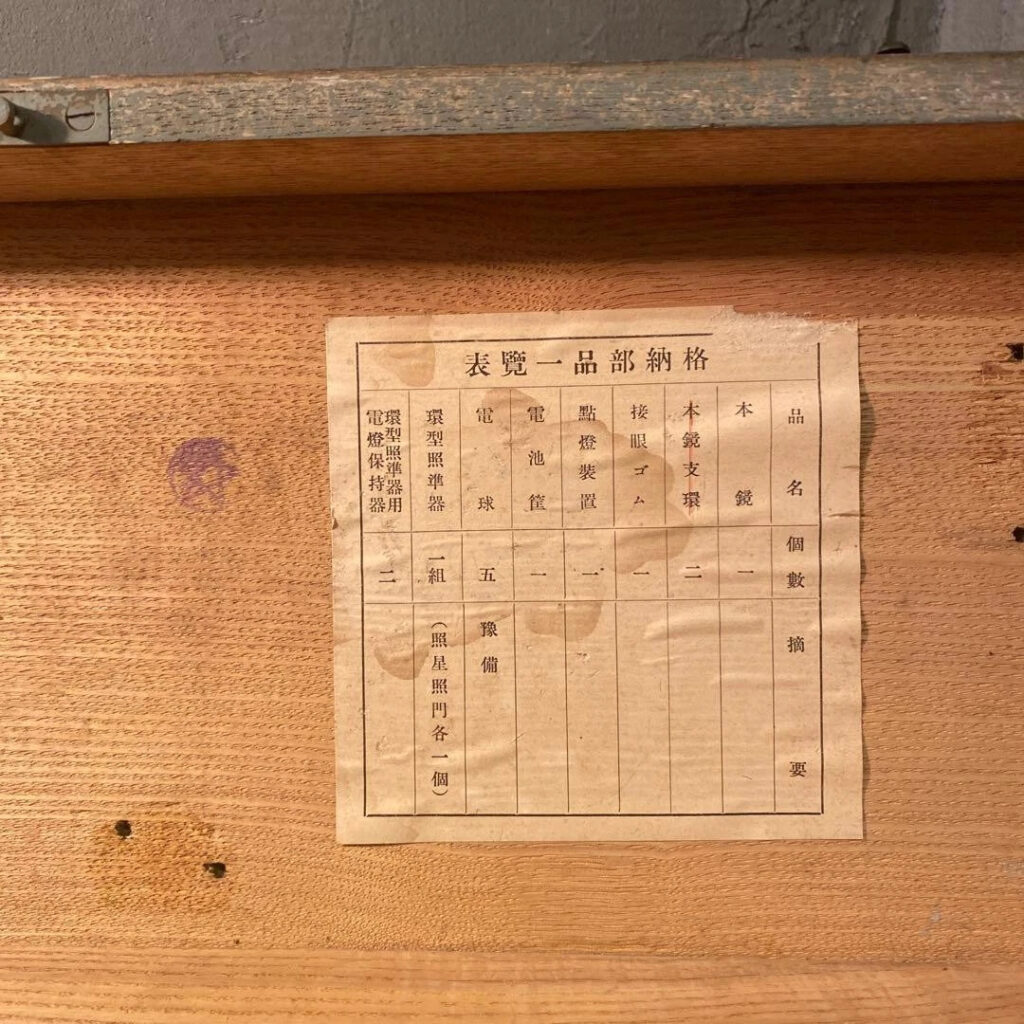 格納部品一覽表
品名 個數 摘要
本鏡 一
本鏡支環 二
接眼ゴム 一
點燈裝置 一
電池筐 一
電球 五 豫備
環型照準器 一組 (照星照門各一個)
環型照準器用電燈保持器 二